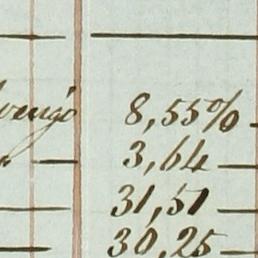 8,55%
3,64
31,51
30,25